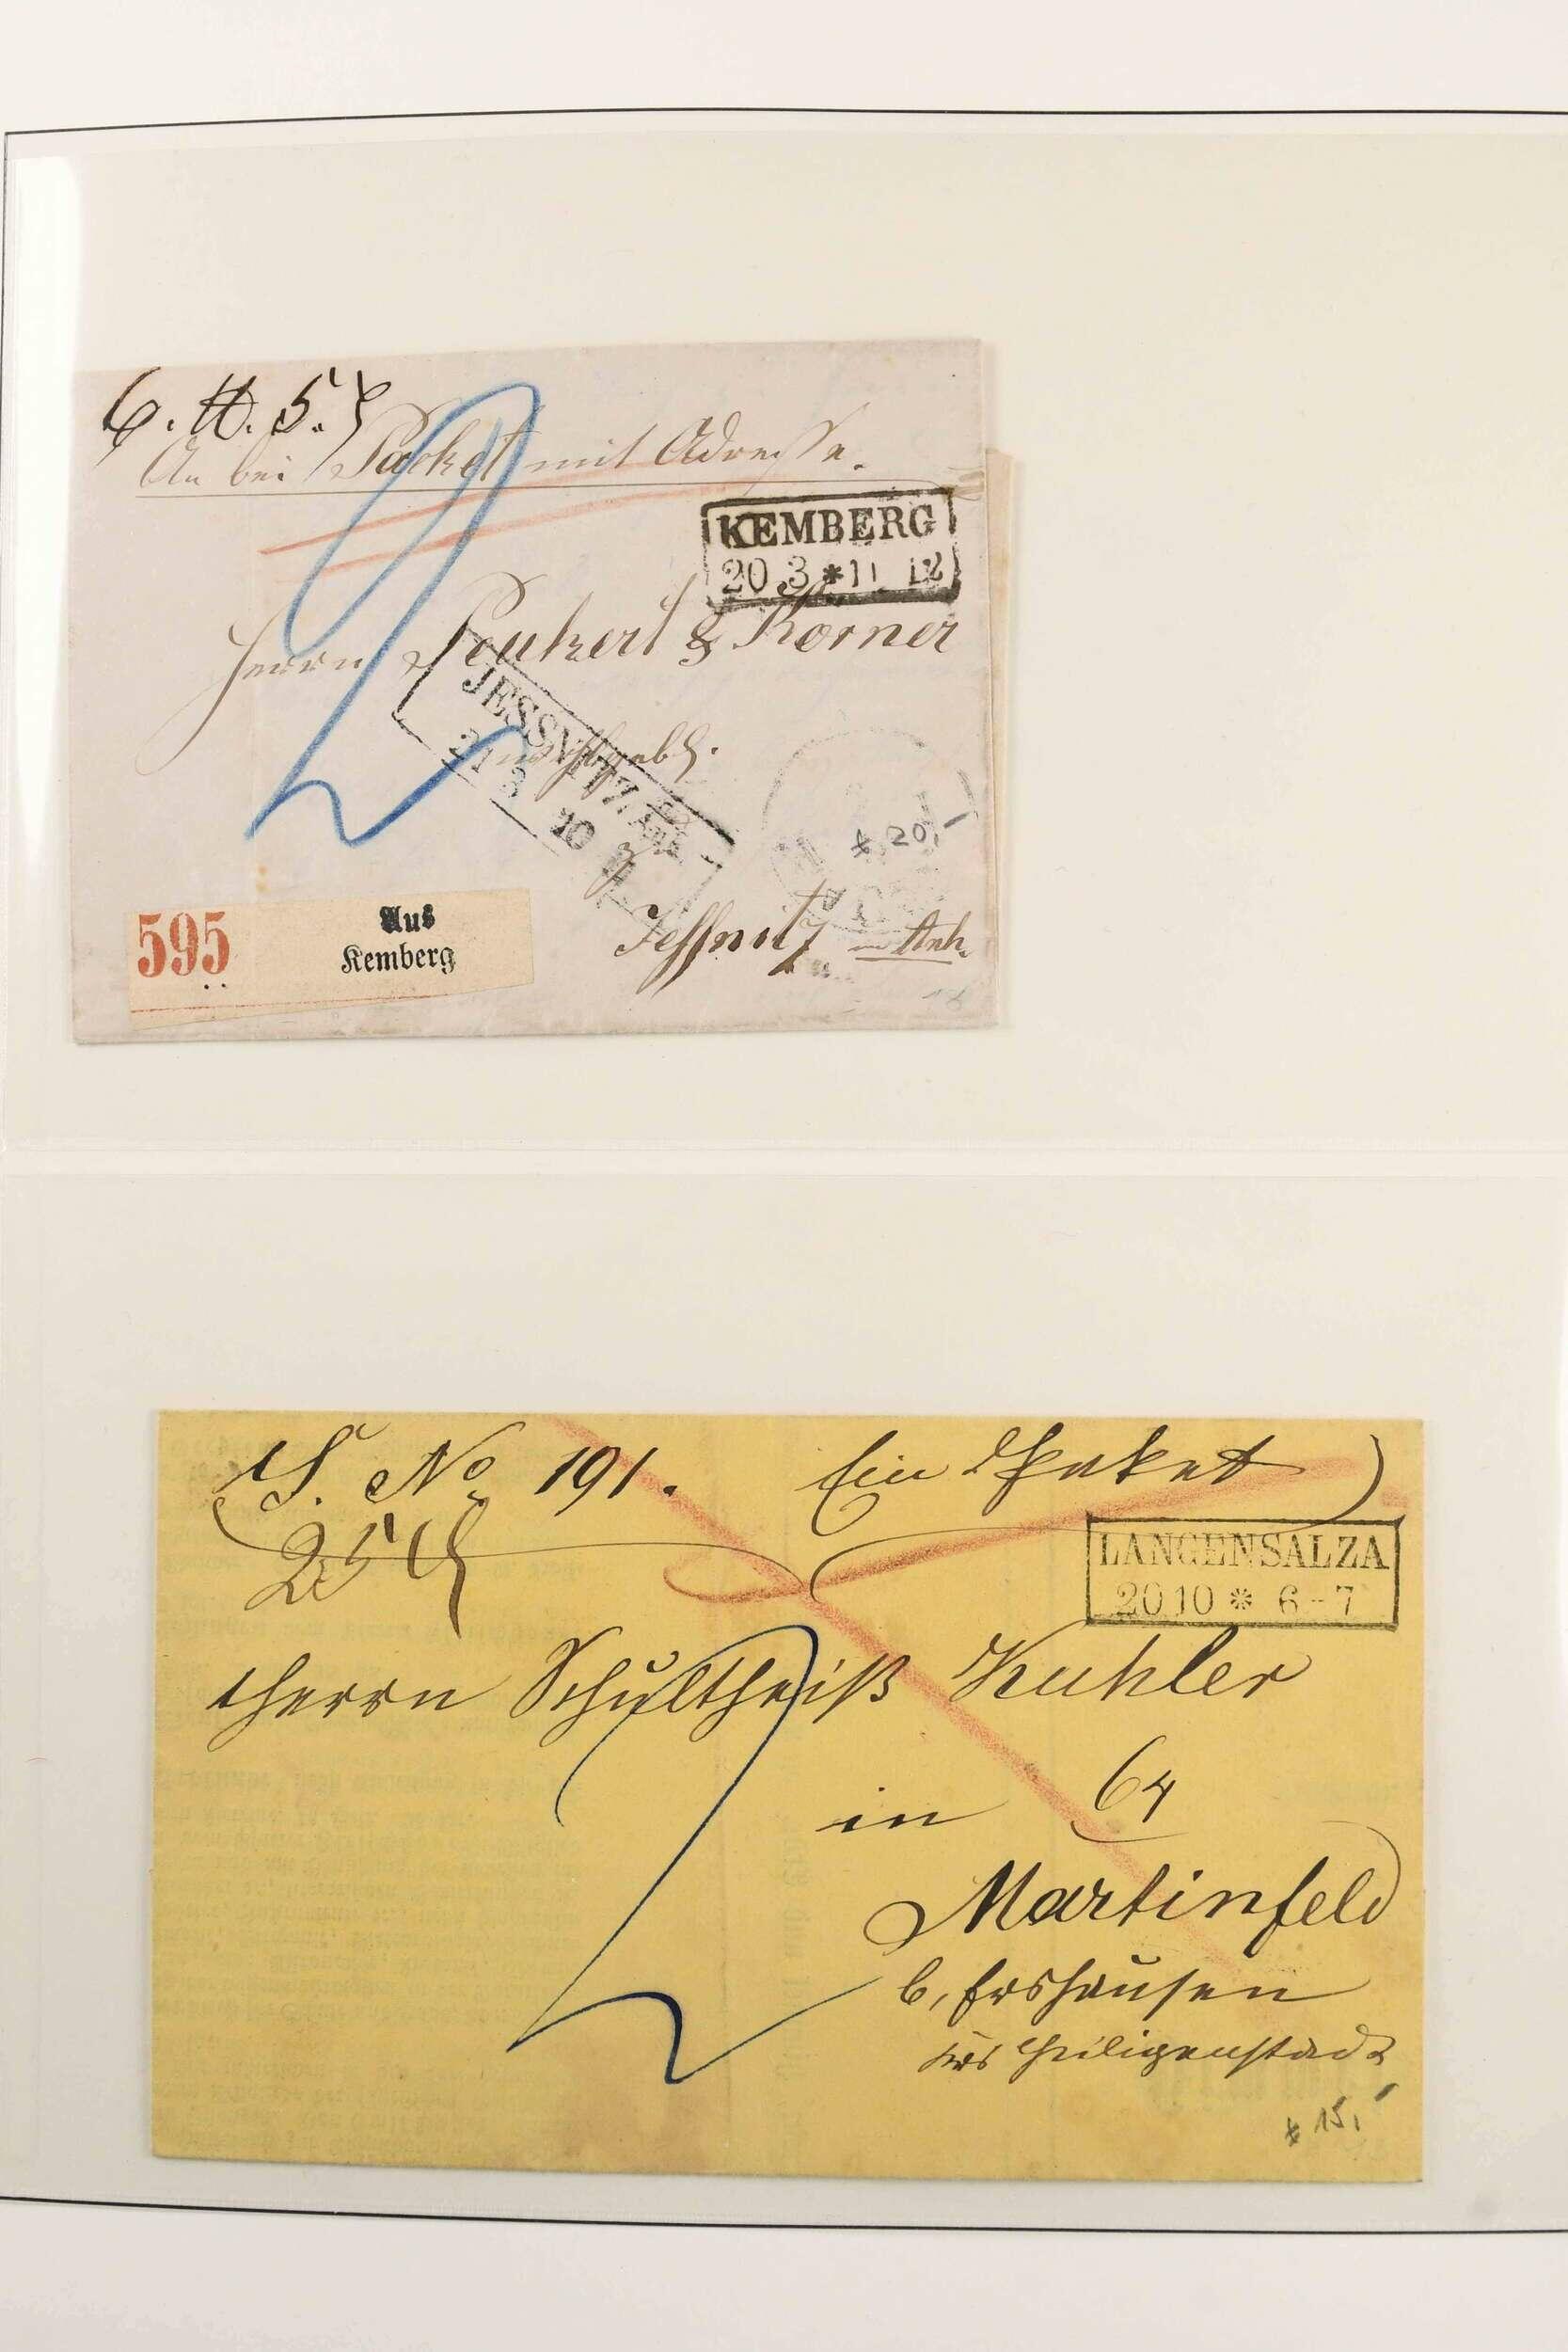 6. ℔. 5.
An bei Packet mit Adresse.
KEMBERG
20 3 * 11 12
Herrn Peukert & Körner
JESSNITZ
21 3 10
* 20,-
595
Aus
Kemberg
Jessnitz in Anh.
S. No 191.
Ein Paket
25 ℔
LANGENSALZA
20 10 * 6-7
Herrn Schultheiß Kuhler
in
64
Martinfeld
b, Ershausen
Krs Heiligenstadt
* 15,-